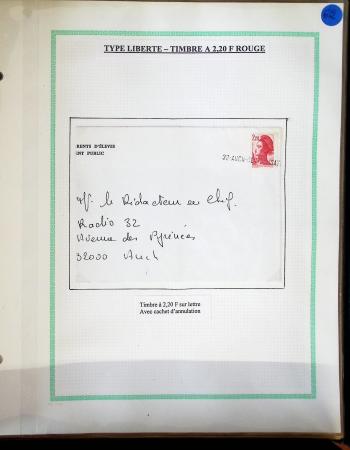 TYPE LIBERTE – TIMBRE A 2,20 F ROUGE
RENTS D'ÉLEVES
NT PUBLIC
2,20
32 AUCH
Mr le Rédacteur en Chef.
Radio 32
Avenue des Pyrénées
32000 Auch
Timbre à 2,20 F sur lettre
Avec cachet d'annulation